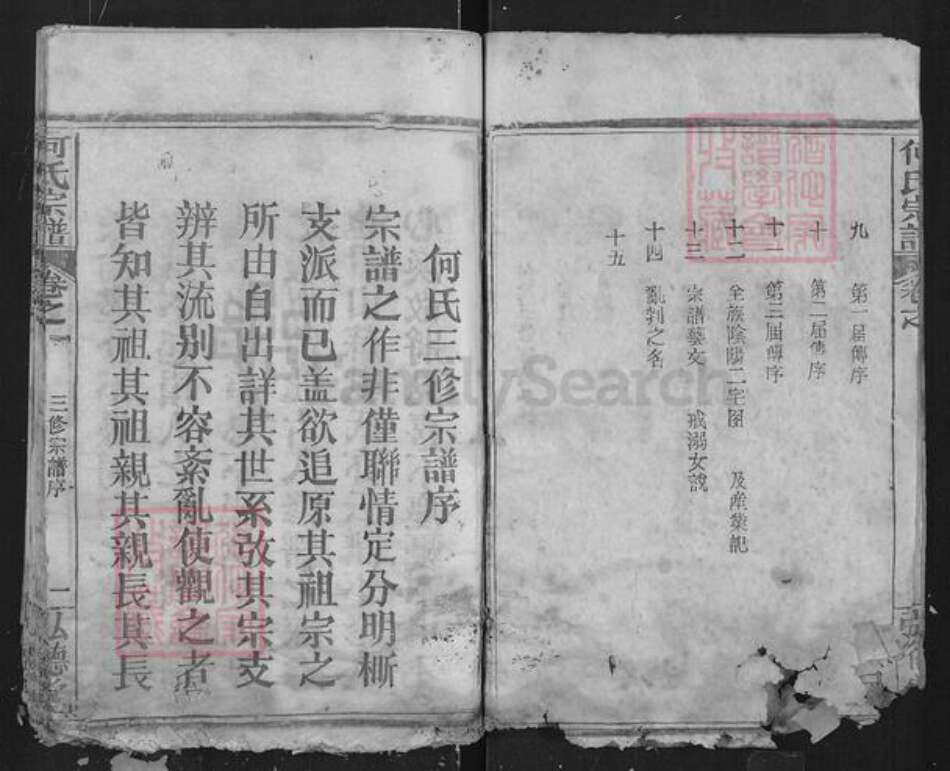 何氏宗譜
卷之
九 第一届傳序
十 第二届傳序
十一 第三届傳序
十二 全族陰陽二宅图 及産業記
十三 宗譜藝文 戒溺女說
十四 亂剝之名
十五
何氏三修宗譜序
宗譜之作非僅聯情定分明
支派而已盖欲追原其祖宗之
所由自出詳其世系攷其宗支
辨其流别不容紊亂使觀之者
皆知其祖其祖親其親長其長
何氏宗譜
卷之一
三修宗譜序
一
弘德
FamilySearch